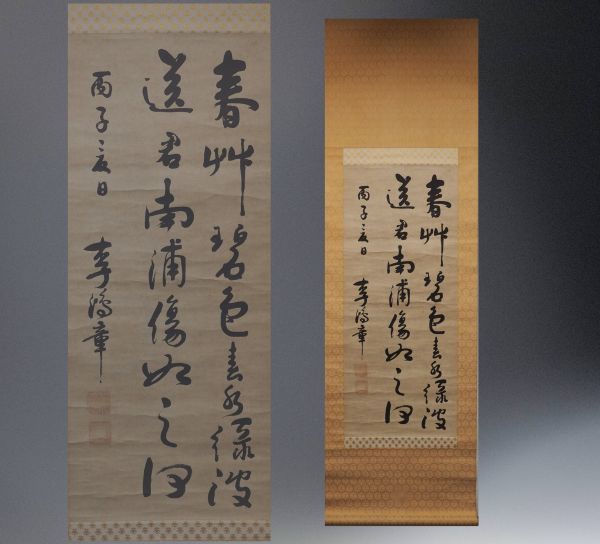 春艸碧色春水渌波
送君南浦傷如之何
丙子夏日 李鴻章
春艸碧色春水渌波
送君南浦傷如之何
丙子夏日 李鴻章